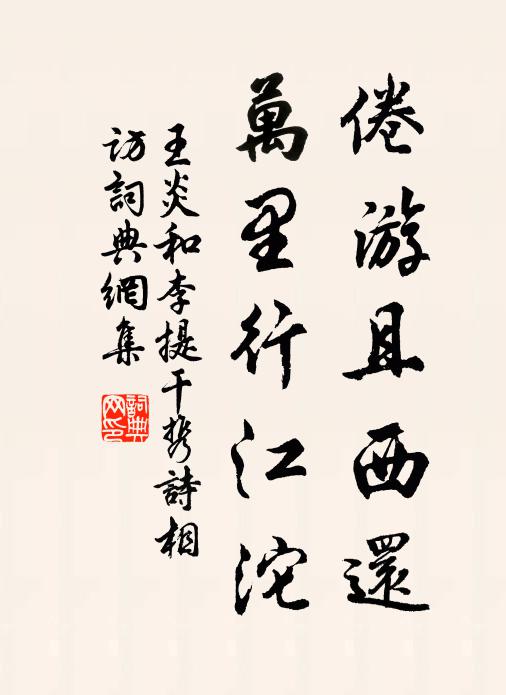 倦游且西還
萬里行江沱
王炎和李提干攜詩相
訪詞典網集
詞典
网印